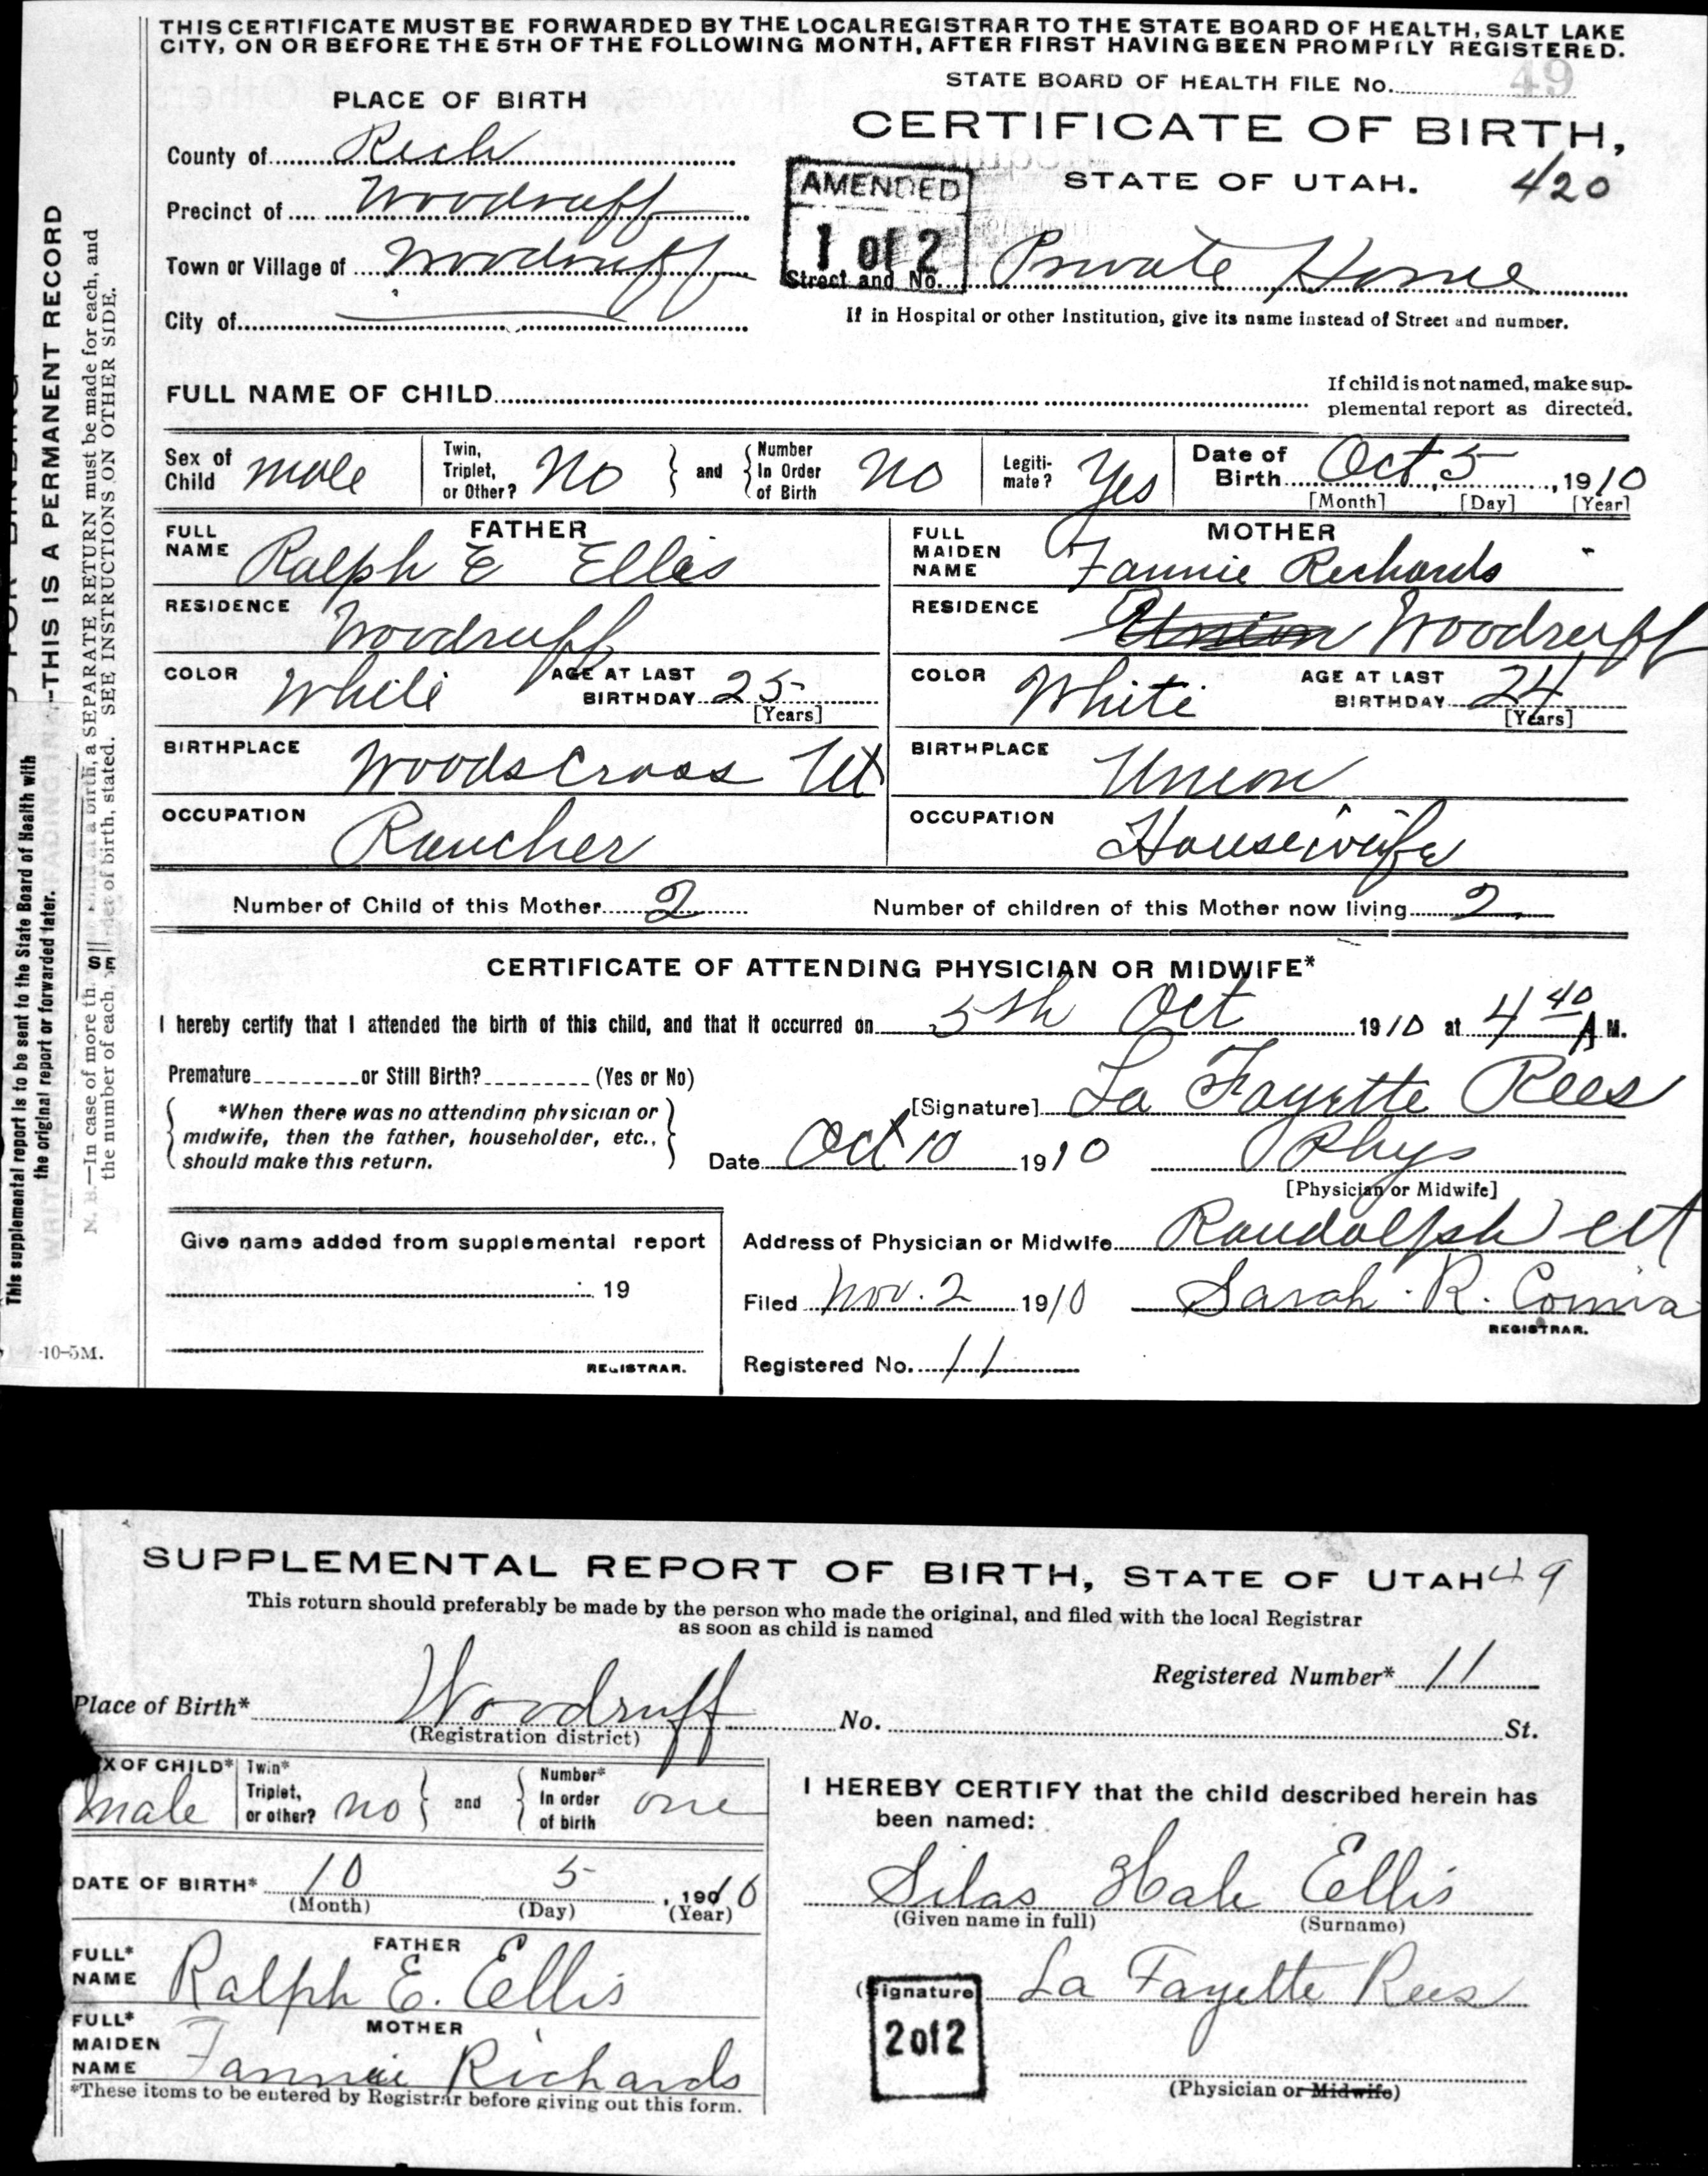 THIS CERTIFICATE MUST BE FORWARDED BY THE LOCAL REGISTRAR TO THE STATE BOARD OF HEALTH, SALT LAKE
CITY, ON OR BEFORE THE 5TH OF THE FOLLOWING MONTH, AFTER FIRST HAVING BEEN PROMPTLY REGISTERED.
STATE BOARD OF HEALTH FILE No. 49
PLACE OF BIRTH
CERTIFICATE OF BIRTH,
STATE OF UTAH. 420
County of Rich
Precinct of Woodruff
Town or Village of Woodruff
City of
AMENDED
1 of 2
Street and No. Private Home
If in Hospital or other Institution, give its name instead of Street and number.
FULL NAME OF CHILD
If child is not named, make sup-
plemental report as directed.
Sex of Child male
Twin, Triplet, or Other? No and Number In Order of Birth No
Legiti-mate? Yes
Date of Birth Oct 5, 1910
[Month] [Day] [Year]
FATHER
FULL NAME Ralph E Ellis
RESIDENCE Woodruff
COLOR White AGE AT LAST BIRTHDAY 25 [Years]
BIRTHPLACE Woodscross Ut
OCCUPATION Rancher
MOTHER
FULL MAIDEN NAME Fannie Richards
RESIDENCE Union Woodruff
COLOR White AGE AT LAST BIRTHDAY 24 [Years]
BIRTHPLACE Union
OCCUPATION Housewife
Number of Child of this Mother 2 Number of children of this Mother now living 2
CERTIFICATE OF ATTENDING PHYSICIAN OR MIDWIFE*
I hereby certify that I attended the birth of this child, and that it occurred on 5th Oct 1910 at 4 40 A M.
Premature or Still Birth? (Yes or No)
*When there was no attending physician or
midwife, then the father, householder, etc.,
should make this return.
[Signature] La Fayette Rees
Date Oct 10 1910 Phys
[Physician or Midwife]
Give name added from supplemental report
19
REGISTRAR.
Address of Physician or Midwife Randolph Ut
Filed Nov. 2 1910 Sarah R. Cornia
REGISTRAR.
Registered No. 11
THIS IS A PERMANENT RECORD
N. B.—In case of more th
a birth, a SEPARATE RETURN must be made for each, and
the number of each, order of birth, stated. SEE INSTRUCTIONS ON OTHER SIDE.
This supplemental report is to be sent to the State Board of Health with
the original report or forwarded later.
-10-5M.
SUPPLEMENTAL REPORT OF BIRTH, STATE OF UTAH 49
This return should preferably be made by the person who made the original, and filed with the local Registrar
as soon as child is named
Registered Number* 11
Place of Birth* Woodruff No. St.
(Registration district)
X OF CHILD* male
Twin* Triplet, or other? no and Number* In order of birth one
DATE OF BIRTH* 10 5, 1910
(Month) (Day) (Year)
FATHER
FULL* NAME Ralph E. Ellis
MOTHER
FULL* MAIDEN NAME Fannie Richards
*These items to be entered by Registrar before giving out this form.
I HEREBY CERTIFY that the child described herein has
been named:
Silas Hale Ellis
(Given name in full) (Surname)
(Signature La Fayette Rees
2 of 2
(Physician or Midwife)